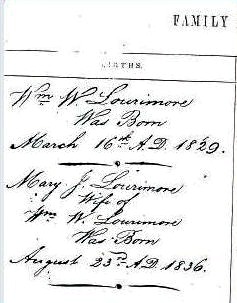 FAMILY
BIRTHS.
Wm W Lourimore
Was Born
March 16th A.D. 1829.
Mary J. Lourimore
Wife of
Wm W. Lourimore
Was Born
August 23rd A.D. 1836.